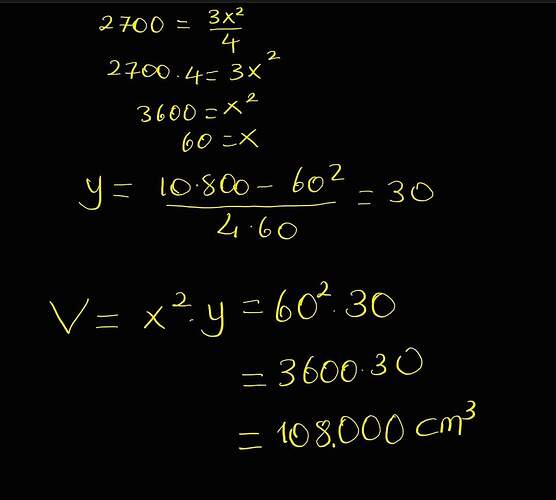 2700 = 3x²/4
2700·4 = 3x²
3600 = x²
60 = x
y = (10.800 - 60²)/(4·60) = 30
V = x²·y = 60²·30
= 3600·30
= 108.000 cm³